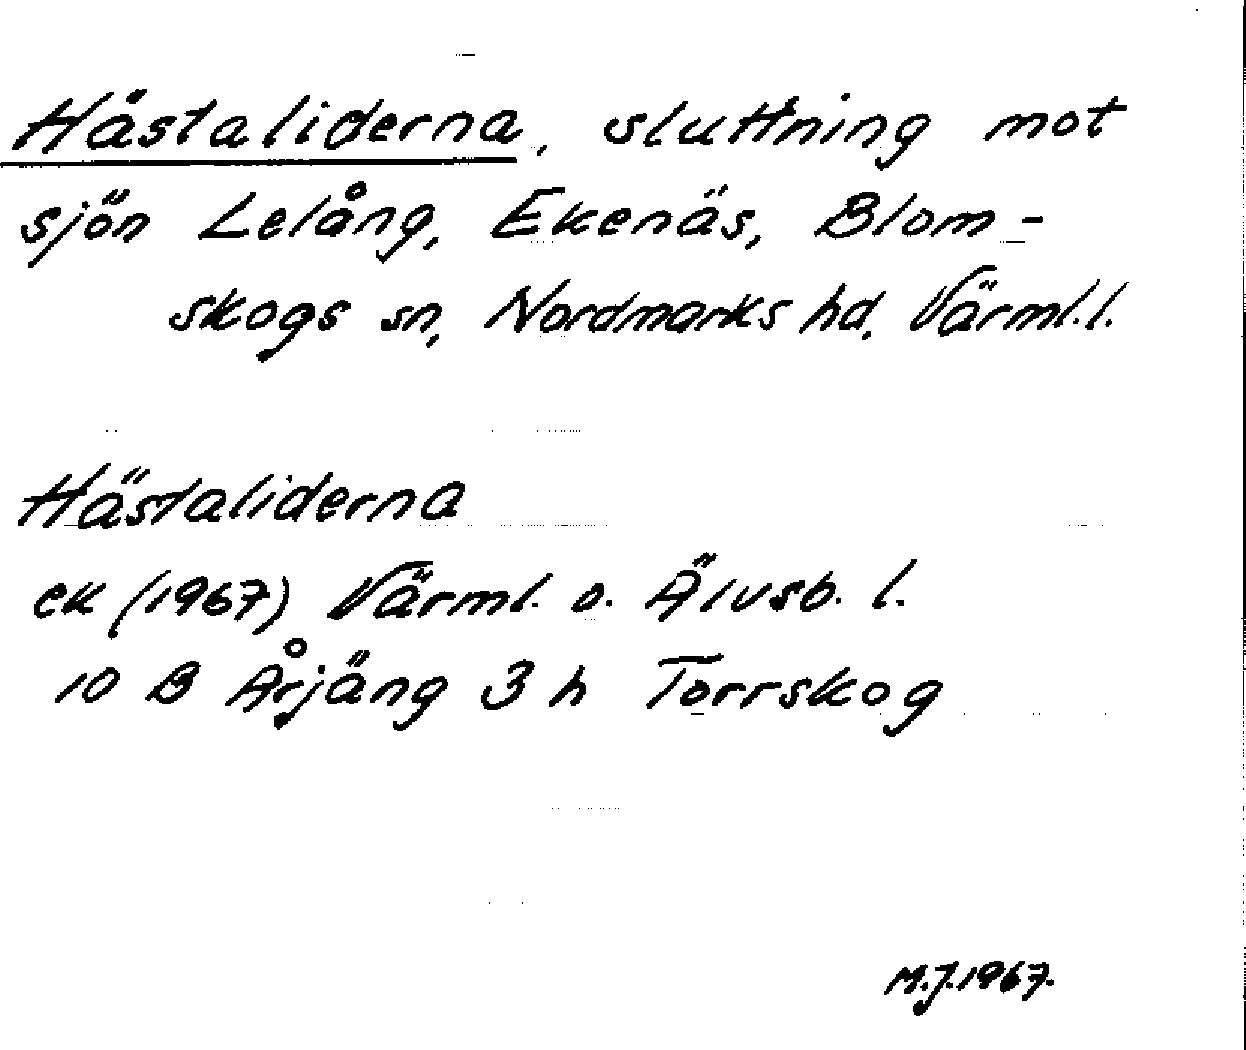 Hästaliderna, sluttning mot
sjön Lelång, Ekenäs, Blom-
skogs sn, Nordmarks hd, Värml.l.
Hästaliderna
ek (1967) Värml. o. Älvsb. l.
10 B Årjäng 3 h Torrskog
M.J.1967.